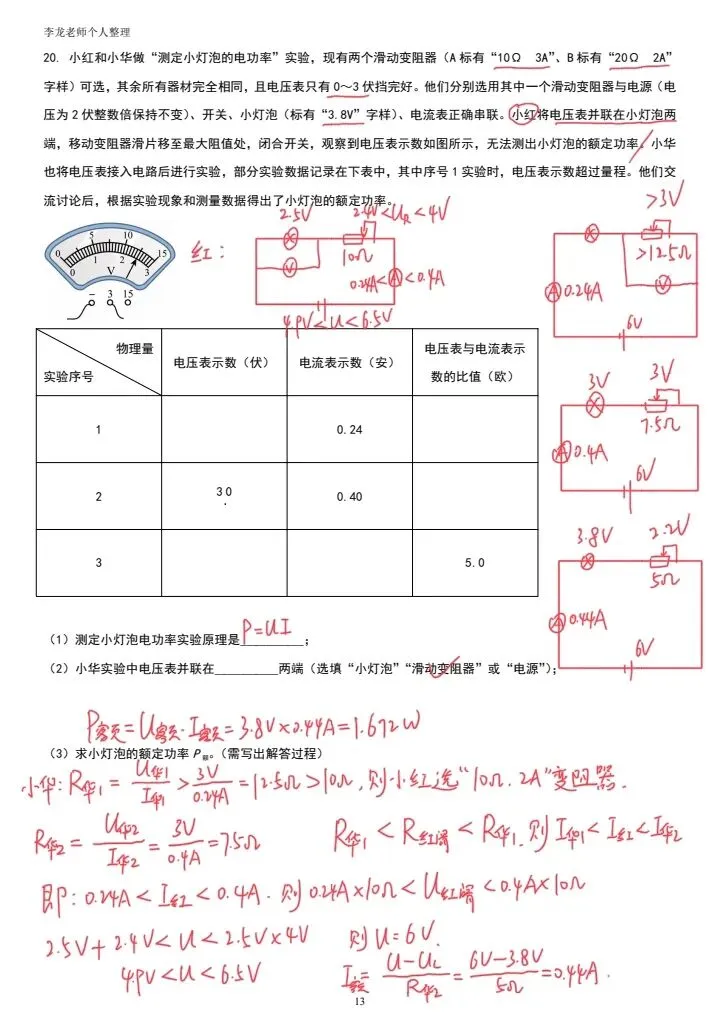 李龙老师个人整理
20. 小红和小华做“测定小灯泡的电功率”实验，现有两个滑动变阻器（A 标有“10Ω 3A”、B 标有“20Ω 2A”
字样）可选，其余所有器材完全相同，且电压表只有 0～3 伏挡完好。他们分别选用其中一个滑动变阻器与电源（电
压为 2 伏整数倍保持不变）、开关、小灯泡（标有“3.8V”字样）、电流表正确串联。小红将电压表并联在小灯泡两
端，移动变阻器滑片移至最大阻值处，闭合开关，观察到电压表示数如图所示，无法测出小灯泡的额定功率。小华
也将电压表接入电路后进行实验，部分实验数据记录在下表中，其中序号 1 实验时，电压表示数超过量程。他们交
流讨论后，根据实验现象和测量数据得出了小灯泡的额定功率。
0 5 10 15
0 1 2 3
V
－ 3 15
红：
2.5V 2.4V<U_R<4V
10Ω
V
0.24A<A<0.4A
4.9V<U<6.5V
>3V
>12.5Ω
V
A 0.24A
6V
物理量
实验序号
电压表示数（伏） 电流表示数（安） 电压表与电流表示
数的比值（欧）
1 0.24
2 3.0 0.40
3 5.0
3V 3V
7.5Ω
A 0.4A
6V
3.8V 2.2V
5Ω
A 0.44A
6V
（1）测定小灯泡电功率实验原理是 P=UI ；
（2）小华实验中电压表并联在__________两端（选填“小灯泡”“滑动变阻器”或“电源”）；
P额=U额·I额=3.8V×0.44A=1.672W
（3）求小灯泡的额定功率 P额。（需写出解答过程）
小华：R华1=U华1/I华1>3V/0.24A=12.5Ω>10Ω，则小红选“10Ω 2A”变阻器．
R华2=U华2/I华2=3V/0.4A=7.5Ω R华1<R红滑<R华1．则I华1<I红<I华2
即：0.24A<I红<0.4A．则0.24A×10Ω<U红滑<0.4A×10Ω
2.5V+2.4V<U<2.5V×4V 则U=6V．
4.9V<U<6.5V I额=U-U_L/R华2=6V-3.8V/5Ω=0.44A．
13